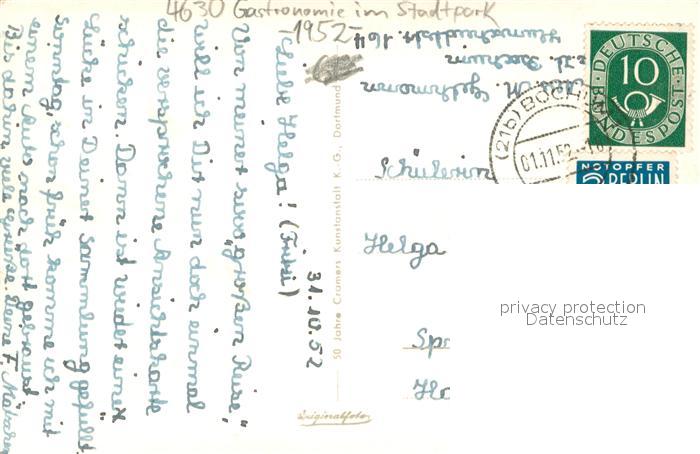 4630 Gastronomie im Stadtpark
-1952-
Liebe Helga! (Fritzi)
31.10.52
Von meiner sog. "großen Reise"
will ich Dir nun doch einmal
die versprochene Ansichtskarte
schicken. Dann ist wieder eine
Lücke in Deiner Sammlung gefüllt.
Sonntag schon früh komme ich mit
einem Auto nach dort gebraust
Bis dahin viele Grüße. Deine F.
Abs. M.
z.Zt. Bochum
16
50 Jahre Cramers Kunstanstalt K.-G., Dortmund
Originalfoto
Schülerin
Helga
Sp
(21b) BOCHUM
01.11.52
DEUTSCHE BUNDESPOST
10
NOTOPFER
2 BERLIN
privacy protection
Datenschutz